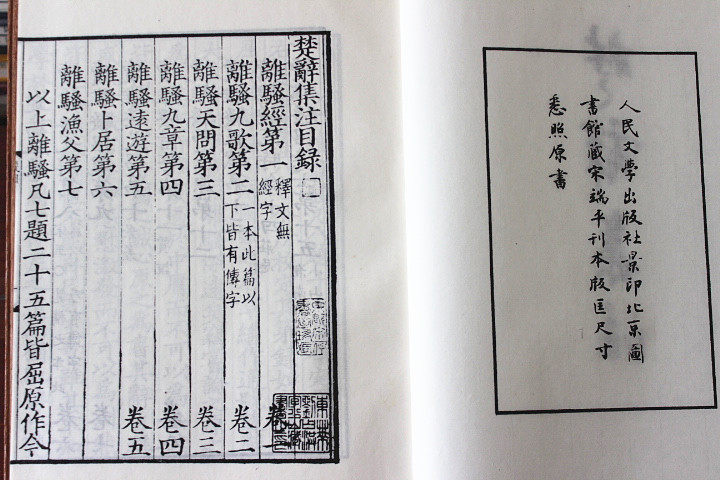 人民文學出版社景印北京圖
書館藏宋端平刊本版匡尺寸
悉照原書
楚辭集注目錄
離騷經第一 釋文無 經字 卷一
離騷九歌第二 一本此篇以 下皆有傳字 卷二
離騷天問第三 卷三
離騷九章第四 卷四
離騷遠遊第五 卷五
離騷卜居第六
離騷漁父第七
以上離騷凡七題二十五篇皆屈原作今